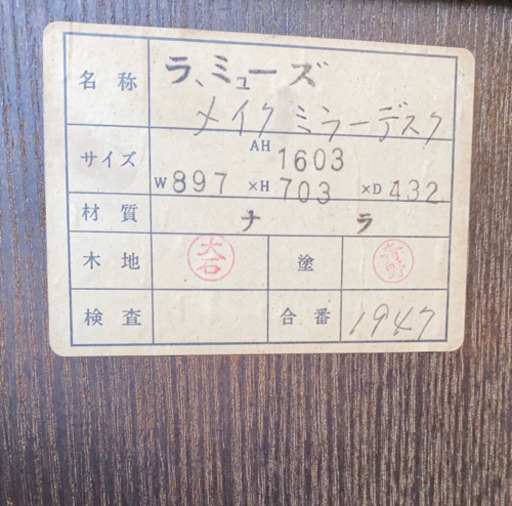 名称 ラ、ミューズ
メイクミラーデスク
サイズ AH 1603
W 897 ×H 703 ×D 432
材質 ナラ
木地 大石 塗 青野
検査 合番 1947